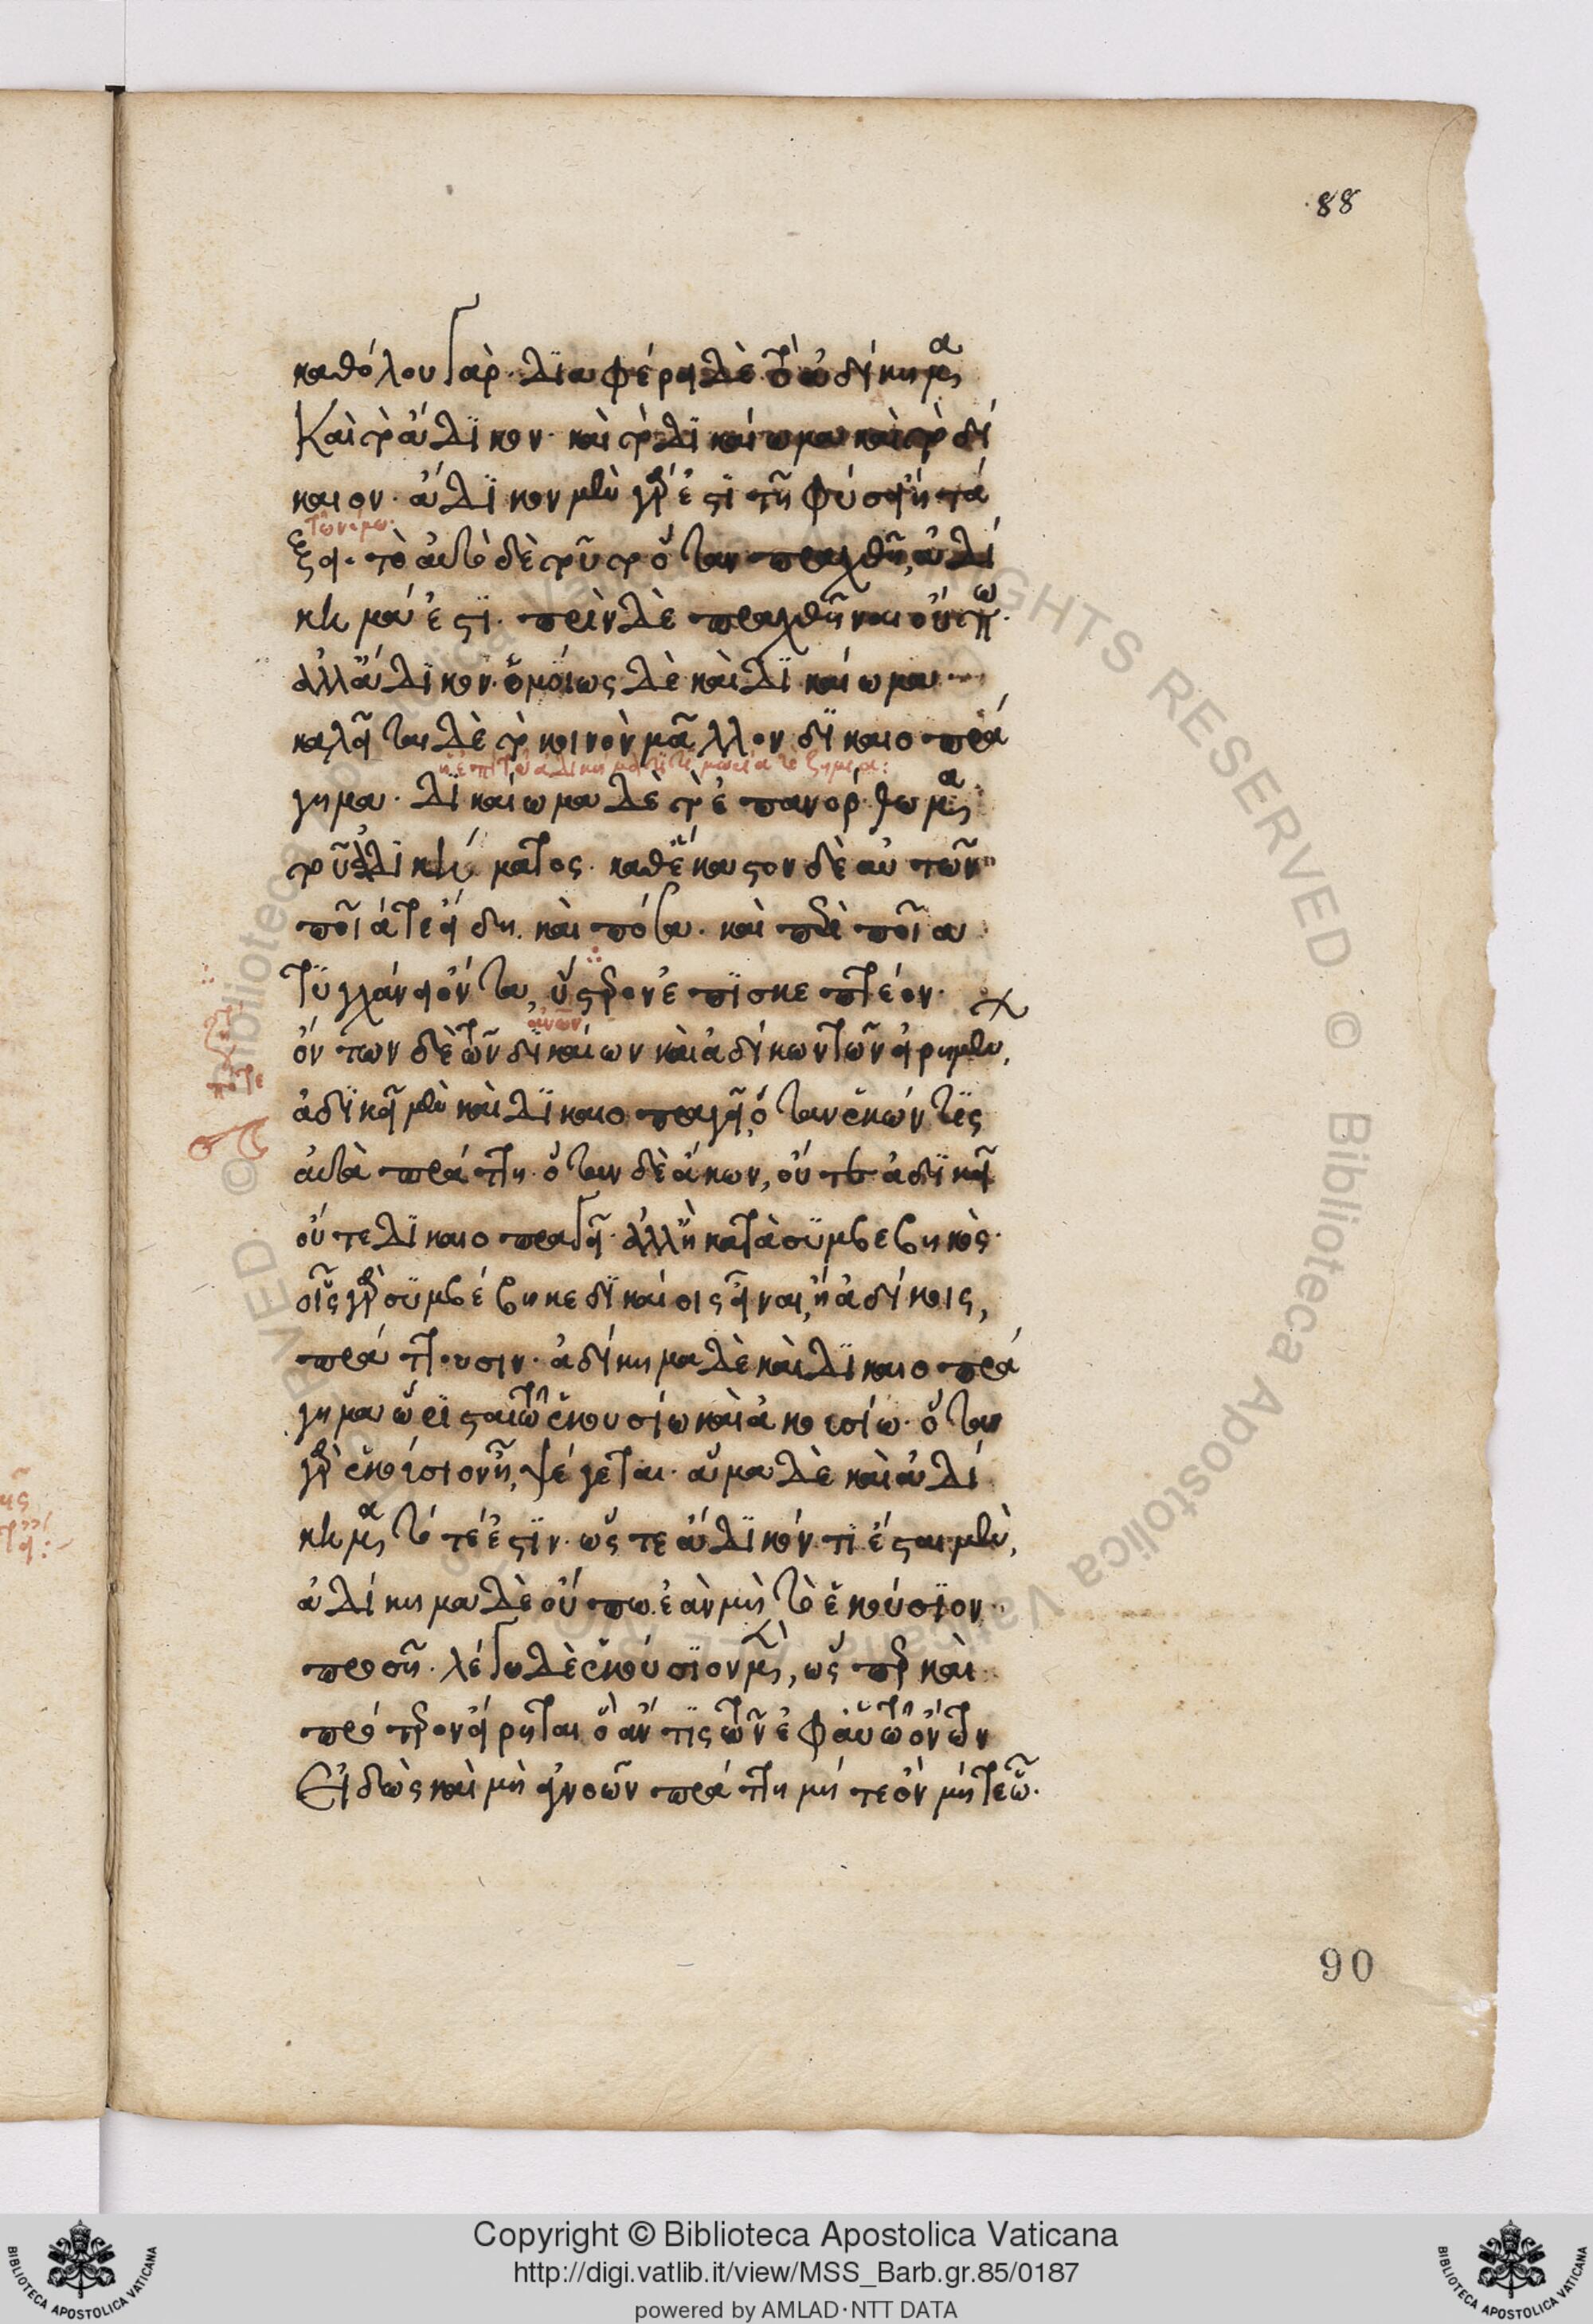 88
καθόλου γὰρ. διαφέρει δὲ τὸ ἀδίκημα
Καὶ τὸ ἄδικον. καὶ τὸ δικαίωμα καὶ τὸ δί
καιον. ἄδικον μὲν γάρ ἐστι τῇ φύσει ἢ τά
τῶ νόμω.
ξει. τὸ αὐτὸ δὲ τοῦτο ὅταν πραχθῆ, ἀδί
κημά ἐστι. πρὶν δὲ πραχθῆναι οὔπω.
ἀλλ' ἄδικον. ὁμοίως δὲ καὶ δικαίωμα
καλεῖται δὲ τὸ κοινὸν μᾶλλον δικαιοπρά
γημα. δικαίωμα δὲ τὸ ἐπανόρθωμα
τοῦ ἀδικήματος. καθ' ἕκαστον δὲ αὐτῶν
ποῖά τε εἴδη. καὶ πόσα. καὶ περὶ ποῖα
τυγχάνει ὄντα, ὕστερον ἐπισκεπτέον.
ὄντων δὲ τῶν δικαίων καὶ ἀδίκων τῶν εἰρημένων,
ἀδικεῖ μὲν καὶ δικαιοπραγεῖ, ὅταν ἑκών τις
αὐτὰ πράττη. ὅταν δὲ ἄκων, οὔτε ἀδικεῖ
οὔτε δικαιοπραγεῖ. ἀλλ' ἢ κατὰ συμβεβηκὸς.
οἷς γὰρ συμβέβηκε δικαίοις εἶναι, ἢ ἀδίκοις,
πράττουσιν. ἀδίκημα δὲ καὶ δικαιοπρά
γημα ὥρισται τῶ ἑκουσίω καὶ ἀκουσίω. ὅταν
γὰρ ἑκούσιον ἦ, ψέγεται. ἅμα δὲ καὶ ἀδί
κημα τότέ ἐστιν. ὥστε ἄδικόν τι ἔσται μὲν,
ἀδίκημα δὲ οὔπω. ἐὰν μὴ τὸ ἑκούσιον
προσῆ. λέγω δὲ ἑκούσιον μὲν, ὥσπερ καὶ
πρότερον εἴρηται ὃ ἄν τις τῶν ἐφ' αὑτῶ ὄντων
Εἰδὼς καὶ μὴ ἀγνοῶν πράττη μήτε ὃν μήτε ὧ.
90
Copyright © Biblioteca Apostolica Vaticana
http://digi.vatlib.it/view/MSS_Barb.gr.85/0187
powered by AMLAD·NTT DATA
BIBLIOTECA APOSTOLICA VATICANA
BIBLIOTECA APOSTOLICA VATICANA